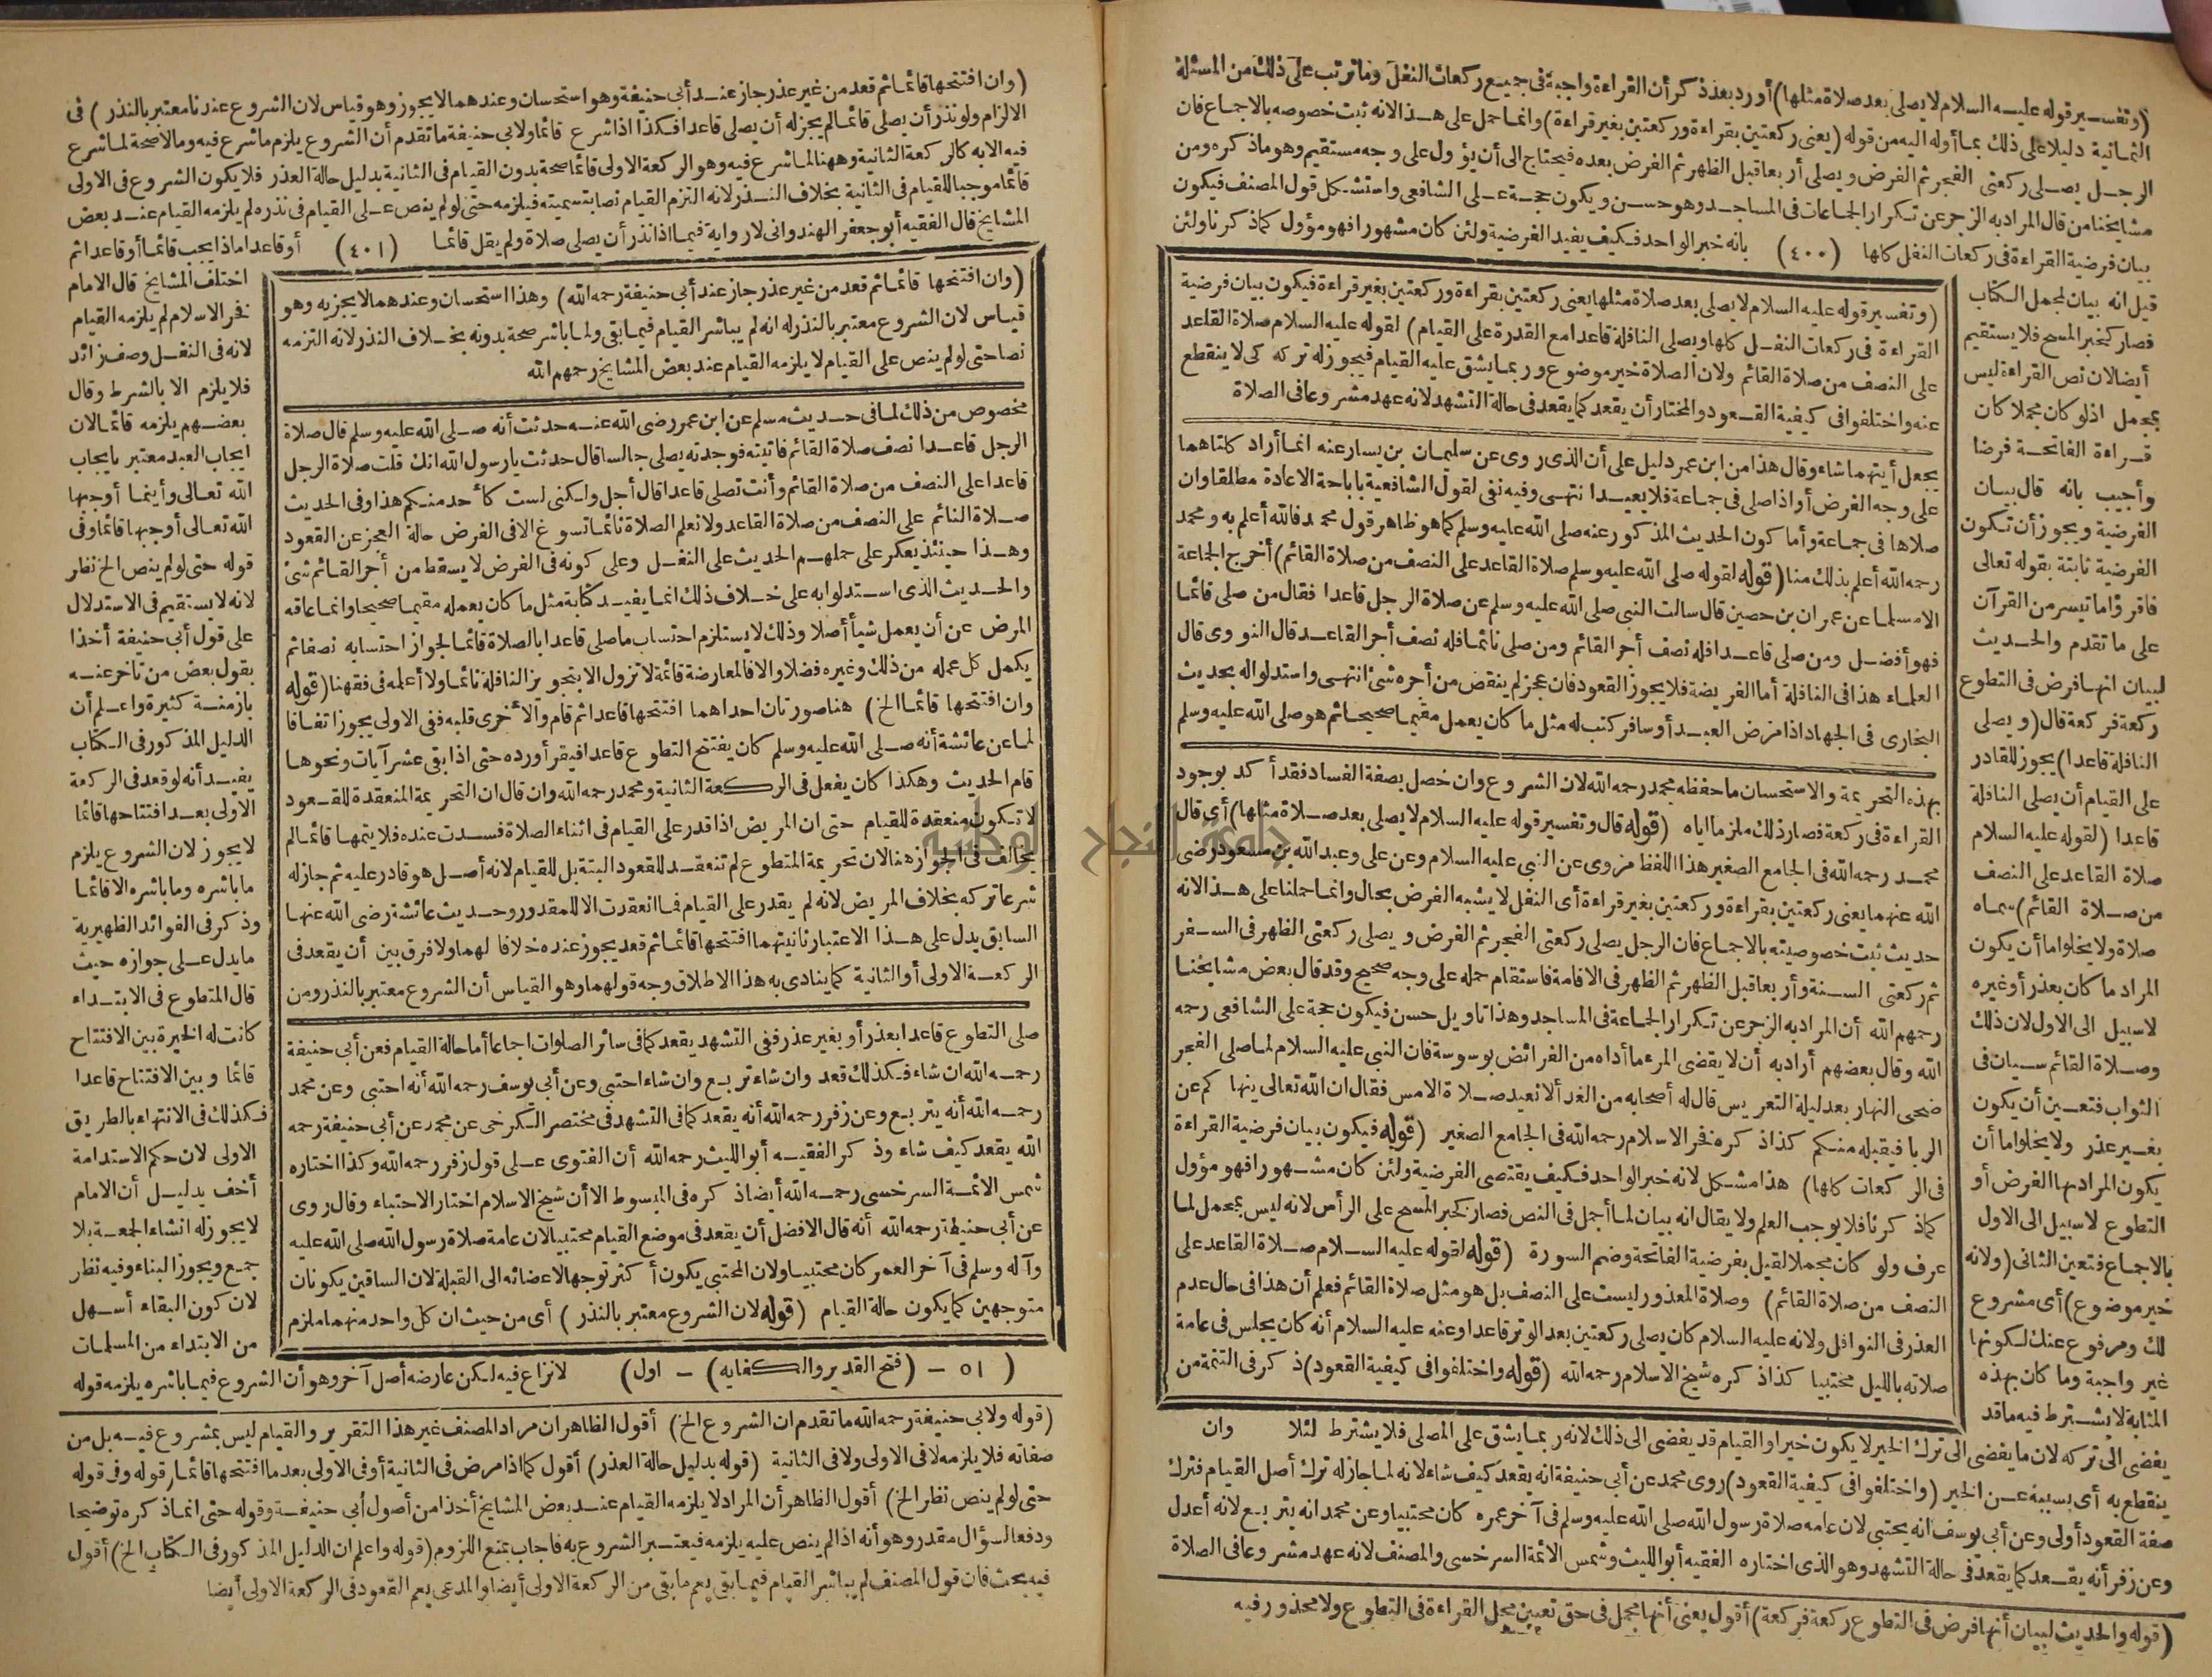 (وتفسير قوله عليه السلام لا يصلى بعد صلاة مثلها) أورد بعد ذكر أن القراءة واجبة فى جميع ركعات النفل وما ترتب على ذلك من المسئلة
الثمانية دليلا على ذلك بما أوله اليه من قوله (يعنى ركعتين بقراءة وركعتين بغير قراءة) وانما حمل على هذا لانه ثبت خصوصه بالاجماع فان
الرجل يصلى ركعتى الفجر ثم الفرض ويصلى أربعا قبل الظهر ثم الفرض بعده فيحتاج الى أن يؤول على وجه مستقيم وهو ما ذكره ومن
مشايخنا من قال المراد به الزجر عن تكرار الجماعات فى المساجد وهو حسن ويكون حجة على الشافعى واستشكل قول المصنف فيكون
بيان فرضية القراءة فى ركعات النفل كلها (٤٠٠) بانه خبر الواحد فكيف يفيد الفرضية ولئن كان مشهورا فهو مؤول كما ذكرنا ولئن
قيل انه بيان لمجمل الكتاب
فصار كخبر المسح فلا يستقيم
أيضا لان نص القراءة ليس
بمجمل اذ لو كان مجملا كان
قراءة الفاتحة فرضا
وأجيب بانه قال بيان
الفرضية ويجوز أن تكون
الفرضية ثابتة بقوله تعالى
فاقرؤا ما تيسر من القرآن
على ما تقدم والحديث
لبيان انها فرض فى التطوع
ركعة فركعة قال (ويصلى
النافلة قاعدا) يجوز للقادر
على القيام أن يصلى النافلة
قاعدا (لقوله عليه السلام
صلاة القاعد على النصف
من صلاة القائم) سماه
صلاة ولا يخلو اما أن يكون
المراد ما كان بعذر أو غيره
لا سبيل الى الاول لان ذلك
وصلاة القائم سيان فى
الثواب فتعين أن يكون
بغير عذر ولا يخلو اما أن
يكون المراد بها الفرض أو
التطوع لا سبيل الى الاول
بالاجماع فتعين الثانى (ولانه
خير موضوع) أى مشروع
لك ومرفوع عنك لكونها
غير واجبة وما كان بهذه
المثابة لا يشترط فيه ما قد
(وتفسير قوله عليه السلام لا يصلى بعد صلاة مثلها يعنى ركعتين بقراءة وركعتين بغير قراءة فيكون بيان فرضية
القراءة فى ركعات النفل كلها ويصلى النافلة قاعدا مع القدرة على القيام) لقوله عليه السلام صلاة القاعد
على النصف من صلاة القائم ولان الصلاة خير موضوع وربما يشق عليه القيام فيجوز له تركه كى لا ينقطع
عنه واختلفوا فى كيفية القعود والمختار أن يقعد كما يقعد فى حالة التشهد لانه عهد مشروعا فى الصلاة
يجعل أيتهما شاء وقال هذا من ابن عمر دليل على أن الذى روى عن سليمان بن يسار عنه انما أراد كلتاهما
على وجه الفرض أو اذا صلى فى جماعة فلا يعيد انتهى وفيه نفى لقول الشافعية باباحة الاعادة مطلقا وان
صلاها فى جماعة وأما كون الحديث المذكور عنه صلى الله عليه وسلم كما هو ظاهر قول محمد فالله أعلم به ومحمد
رحمه الله أعلم بذلك منا (قوله لقوله صلى الله عليه وسلم صلاة القاعد على النصف من صلاة القائم) أخرج الجماعة
الا مسلما عن عمران بن حصين قال سالت النبى صلى الله عليه وسلم عن صلاة الرجل قاعدا فقال من صلى قائما
فهو أفضل ومن صلى قاعدا فله نصف أجر القائم ومن صلى نائما فله نصف أجر القاعد قال النووى قال
العلماء هذا فى النافلة أما الفريضة فلا يجوز القعود فان عجز لم ينقص من أجره شئ انتهى واستدلوا له بحديث
البخارى فى الجهاد اذا مرض العبد أو سافر كتب له مثل ما كان يعمل مقيما صحيحا ثم هو صلى الله عليه وسلم
بهذه التحريمة والاستحسان ما حفظه محمد رحمه الله لان الشروع وان حصل بصفة الفساد فقد أكد بوجود
القراءة فى ركعة فصار ذلك ملزما اياه (قوله قال وتفسير قوله عليه السلام لا يصلى بعد صلاة مثلها) أى قال
محمد رحمه الله فى الجامع الصغير هذا اللفظ مروى عن النبى عليه السلام وعن على وعبد الله بن مسعود رضى
الله عنهما يعنى ركعتين بقراءة وركعتين بغير قراءة أى النفل لا يشبه الفرض بحال وانما حملنا على هذا لانه
حديث ثبت خصوصيته بالاجماع فان الرجل يصلى ركعتى الفجر ثم الفرض ويصلى ركعتى الظهر فى السفر
ثم ركعتى السنة وأربعا قبل الظهر ثم الظهر فى الاقامة فاستقام حمله على وجه صحيح وقد قال بعض مشايخنا
رحمهم الله أن المراد به الزجر عن تكرار الجماعة فى المساجد وهذا تاويل حسن فيكون حجة على الشافعى رحمه
الله وقال بعضهم أراد به أن لا يقضى المرء ما أداه من الفرائض بوسوسة فان النبى عليه السلام لما صلى الفجر
ضحى النهار بعد ليلة التعريس قال له أصحابه من الغد ألا نعيد صلاة الامس فقال ان الله تعالى ينهاكم عن
الربا فيقبله منكم كذا ذكره فخر الاسلام رحمه الله فى الجامع الصغير (قوله فيكون بيان فرضية القراءة
فى الركعات كلها) هذا مشكل لانه خبر الواحد فكيف يقتضى الفرضية ولئن كان مشهورا فهو مؤول
كما ذكرنا فلا يوجب العلم ولا يقال انه بيان لما أجمل فى النص فصار كخبر المسح على الرأس لانه ليس بمجمل لما
عرف ولو كان مجملا لقيل بفرضية الفاتحة وضم السورة (قوله لقوله عليه السلام صلاة القاعد على
النصف من صلاة القائم) وصلاة المعذور ليست على النصف بل هو مثل صلاة القائم فعلم أن هذا فى حال عدم
العذر فى النوافل ولانه عليه السلام كان يصلى ركعتين بعد الوتر قاعدا وعنه عليه السلام أنه كان يجلس فى عامة
صلاته بالليل محتبيا كذا ذكره شيخ الاسلام رحمه الله (قوله واختلفوا فى كيفية القعود) ذكر فى التتمة من
يفضى الى تركه لان ما يفضى الى ترك الخير لا يكون خيرا والقيام قد يفضى الى ذلك لانه ربما يشق على المصلى فلا يشترط لئلا وان
ينقطع به أى بسببه عن الخير (واختلفوا فى كيفية القعود) روى محمد عن أبى حنيفة انه يقعد كيف شاء لانه لما جاز له ترك أصل القيام فترك
صفة القعود أولى وعن أبى يوسف انه يحتبى لان عامة صلاة رسول الله صلى الله عليه وسلم فى آخر عمره كان محتبيا وعن محمد انه يتربع لانه أعدل
وعن زفر أنه يقعد كما يقعد فى حالة التشهد وهو الذى اختاره الفقيه أبو الليث وشمس الائمة السرخسى والمصنف لانه عهد مشروعا فى الصلاة
(قوله والحديث لبيان أنها فرض فى التطوع ركعة فركعة) أقول يعنى أنها مجمل فى حق تعيين محل القراءة فى التطوع ولا محذور فيه
(وان افتتحها قائما ثم قعد من غير عذر جاز عند أبى حنيفة وهو استحسان وعندهما لا يجوز وهو قياس لان الشروع عندنا معتبر بالنذر) فى
الالزام ولو نذر أن يصلى قائما لم يجز له أن يصلى قاعدا فكذا اذا شرع قائما ولابى حنيفة ما تقدم أن الشروع يلزم ما شرع فيه وما لا صحة لما شرع
فيه الا به كالركعة الثانية وههنا لما شرع فيه وهو الركعة الاولى قائما صحة بدون القيام فى الثانية بدليل حالة العذر فلا يكون الشروع فى الاولى
قائما موجبا للقيام فى الثانية بخلاف النذر لانه التزم القيام نصا بتسميته فيلزمه حتى لو لم ينص على القيام فى نذره لم يلزمه القيام عند بعض
المشايخ قال الفقيه أبو جعفر الهندوانى لا رواية فيما اذا نذر أن يصلى صلاة ولم يقل قائما (٤٠١) أو قاعدا ماذا يجب قائما أو قاعدا ثم
(وان افتتحها قائما ثم قعد من غير عذر جاز عند أبى حنيفة رحمه الله) وهذا استحسان وعندهما لا يجزيه وهو
قياس لان الشروع معتبر بالنذر له انه لم يباشر القيام فيما بقى ولما باشر صحة بدونه بخلاف النذر لانه التزمه
نصا حتى لو لم ينص على القيام لا يلزمه القيام عند بعض المشايخ رحمهم الله
مخصوص من ذلك لما فى حديث مسلم عن ابن عمر رضى الله عنه حدثت أنه صلى الله عليه وسلم قال صلاة
الرجل قاعدا نصف صلاة القائم فاتيته فوجدته يصلى جالسا قال حدثت يارسول الله انك قلت صلاة الرجل
قاعدا على النصف من صلاة القائم وأنت تصلى قاعدا قال أجل ولكنى لست كأحد منكم هذا وفى الحديث
صلاة النائم على النصف من صلاة القاعد ولا نعلم الصلاة نائما تسوغ الا فى الفرض حالة العجز عن القعود
وهذا حينئذ يعكر على حملهم الحديث على النفل وعلى كونه فى الفرض لا يسقط من أجر القائم شئ
والحديث الذى استدلوا به على خلاف ذلك انما يفيد كتابة مثل ما كان يعمله مقيما صحيحا وانما عاقه
المرض عن أن يعمل شيأ أصلا وذلك لا يستلزم احتساب ما صلى قاعدا بالصلاة قائما لجواز احتسابه نصفا ثم
يكمل كل عمله من ذلك وغيره فضلا والا فالمعارضة قائمة لا تزول الا بتجويز النافلة نائما ولا أعلمه فى فقهنا (قوله
وان افتتحها قائما الخ) هنا صورتان احداهما افتتحها قاعدا ثم قام والأخرى قلبه ففى الاولى يجوز اتفاقا
لما عن عائشة أنه صلى الله عليه وسلم كان يفتتح التطوع قاعدا فيقرأ ورده حتى اذا بقى عشر آيات ونحوها
قام الحديث وهكذا كان يفعل فى الركعة الثانية ومحمد رحمه الله وان قال ان التحريمة المنعقدة للقعود
لا تكون منعقدة للقيام حتى ان المريض اذا قدر على القيام فى اثناء الصلاة فسدت عنده فلا يتمها قائما لم
يخالف فى الجواز هنا لان تحريمة المتطوع لم تنعقد للقعود البتة بل للقيام لانه أصل هو قادر عليه ثم جاز له
شرعا تركه بخلاف المريض لانه لم يقدر على القيام فما انعقدت الا للمقدور وحديث عائشة رضى الله عنها
السابق يدل على هذا الاعتبار ثانيتهما افتتحها قائما ثم قعد يجوز عنده خلافا لهما ولا فرق بين أن يقعد فى
الركعة الاولى أو الثانية كما ينادى به هذا الاطلاق وجه قولهما وهو القياس أن الشروع معتبر بالنذر ومن
صلى التطوع قاعدا بعذر أو بغير عذر ففى التشهد يقعد كما فى سائر الصلوات اجماعا أما حالة القيام فعن أبى حنيفة
رحمه الله ان شاء فكذلك قعد وان شاء تربع وان شاء احتبى وعن أبى يوسف رحمه الله أنه احتبى وعن محمد
رحمه الله أنه يتربع وعن زفر رحمه الله أنه يقعد كما فى التشهد فى مختصر الكرخى عن محمد عن أبى حنيفة رحمه
الله يقعد كيف شاء وذكر الفقيه أبو الليث رحمه الله أن الفتوى على قول زفر رحمه الله وكذا اختاره
شمس الائمة السرخسى رحمه الله أيضا ذكره فى المبسوط الا أن شيخ الاسلام اختار الاحتباء وقال روى
عن أبى حنيفة رحمه الله أنه قال الافضل أن يقعد فى موضع القيام محتبيا لان عامة صلاة رسول الله صلى الله عليه
وآله وسلم فى آخر العمر كان محتبيا ولان المحتبى يكون أكثر توجها لاعضائه الى القبلة لان الساقين يكونان
متوجهين كما يكون حالة القيام (قوله لان الشروع معتبر بالنذر) أى من حيث ان كل واحد منهما ملزم
اختلف المشايخ قال الامام
فخر الاسلام لم يلزمه القيام
لانه فى النفل وصف زائد
فلا يلزم الا بالشرط وقال
بعضهم يلزمه قائما لان
ايجاب العبد معتبر بايجاب
الله تعالى وأينما أوجبها
الله تعالى أوجبها قائما وفى
قوله حتى لو لم ينص الخ نظر
لانه لا يستقيم فى الاستدلال
على قول أبى حنيفة أخذا
بقول بعض من تاخر عنه
بازمنة كثيرة واعلم أن
الدليل المذكور فى الكتاب
يفيد أنه لو قعد فى الركعة
الاولى بعد افتتاحها قائما
لا يجوز لان الشروع يلزم
ما باشره وما باشره الا قائما
وذكر فى الفوائد الظهيرية
ما يدل على جوازه حيث
قال المتطوع فى الابتداء
كانت له الخيرة بين الافتتاح
قائما وبين الافتتاح قاعدا
فكذلك فى الانتهاء بالطريق
الاولى لان حكم الاستدامة
أخف بدليل أن الامام
لا يجوز له انشاء الجمعة بلا
جمع ويجوز البناء وفيه نظر
لان كون البقاء أسهل
من الابتداء من المسلمات
(٥١ - (فتح القدير والكفايه) - اول) لا نزاع فيه لكن عارضه أصل آخر وهو أن الشروع فيما باشره يلزمه قوله
(قوله ولابى حنيفة رحمه الله ما تقدم ان الشروع الخ) أقول الظاهر ان مراد المصنف غير هذا التقرير والقيام ليس بمشروع فيه بل من
صفاته فلا يلزمه لا فى الاولى ولا فى الثانية (قوله بدليل حالة العذر) أقول كما اذا مرض فى الثانية أو فى الاولى بعد ما افتتحها قائما (قوله وفى قوله
حتى لو لم ينص نظر الخ) أقول الظاهر أن المراد لا يلزمه القيام عند بعض المشايخ أخذا من أصول أبى حنيفة وقوله حتى انما ذكره توضيحا
ودفعا لسؤال مقدر وهو أنه اذا لم ينص عليه يلزمه فيعتبر الشروع به فاجاب بمنع اللزوم (قوله واعلم ان الدليل المذكور فى الكتاب الخ) أقول
فيه بحث فان قول المصنف لم يباشر القيام فيما بقى يعم ما بقى من الركعة الاولى أيضا والمدعى يعم القعود فى الركعة الاولى أيضا
جامعة النجاح الوطنية